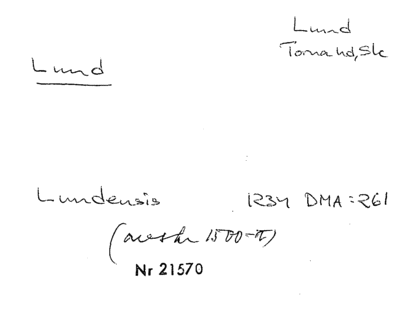 Lund
Torna hd, Sk
Lund
Lundensis 1234 DMA:261
(avskr 1500-t)
Nr 21570